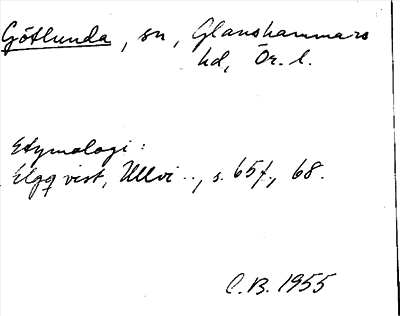 Götlunda, sn, Glanshammars
hd, Ör. l.
Etymologi:
Elgqvist, Ullvi.., s. 65f., 68.
C.B. 1955